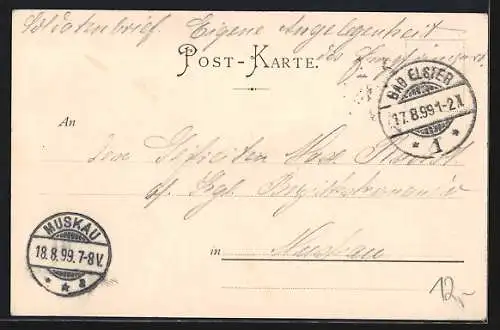 Soldatenbrief. Eigene Angelegenheit
des Empfängers.
POST-KARTE.
BAD ELSTER
17.8.99 1-2N
* 1 *
An
den Gefreiten
Kgl. Bezirkskommando
MUSKAU
18.8.99. 7-8V.
* * a
in Muskau
12,-